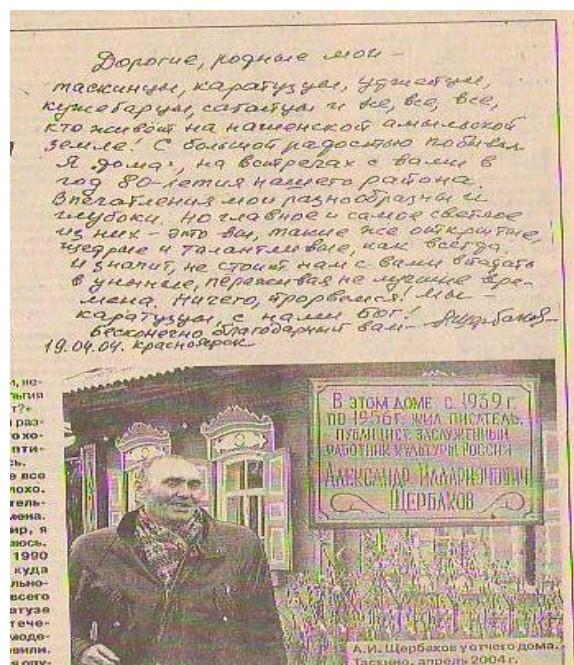 Дорогие, родные мои –
таскинцы, каратузцы, уджейцы,
кужебарцы, сагайцы и все, все, все,
кто живёт на нашенской амыльской
земле! С большой радостью побывал
я „дома", на встречах с вами в
год 80-летия нашего района.
Впечатления мои разнообразны и
глубоки. Но главное и самое светлое
из них – это вы, такие же открытые,
щедрые и талантливые, как всегда.
И значит, не стоит нам с вами впадать
в унынье, переживая не лучшие вре-
мена. Ничего, прорвёмся! Мы –
каратузцы, с нами Бог!
Бесконечно благодарный вам – АЩербаков
19.04.04. Красноярск
и, не-
льгия
т?»
раз-
о хо-
пти-
сь.
е все
лохо.
тель-
мена.
ир, я
юсь.
1990
куда
льно-
всего
атузе
тече-
моде-
вили.
В ЭТОМ ДОМЕ С 1939 Г.
ПО 1956 Г. ЖИЛ ПИСАТЕЛЬ,
ПУБЛИЦИСТ, ЗАСЛУЖЕННЫЙ
РАБОТНИК КУЛЬТУРЫ РОССИИ
АЛЕКСАНДР ИЛЛАРИОНОВИЧ
ЩЕРБАКОВ
А.И. Щербаков у отчего дома.
Таскино, апрель 2004 г.